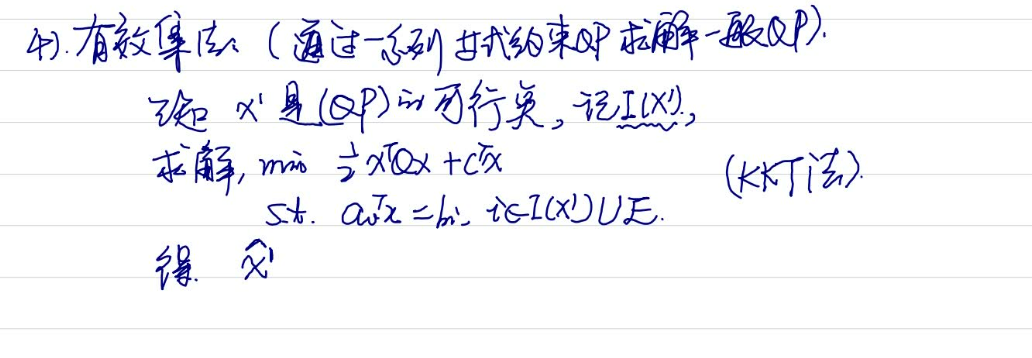 4). 有效集法: (通过一系列等式约束QP求解一般QP).
已知 x¹ 是(QP)的可行点, 记I(x¹),
求解, min ½xᵀQx + cᵀx (KKT法).
s.t. aᵢᵀx = bᵢ, i∈I(x¹)∪E.
得. x̂¹